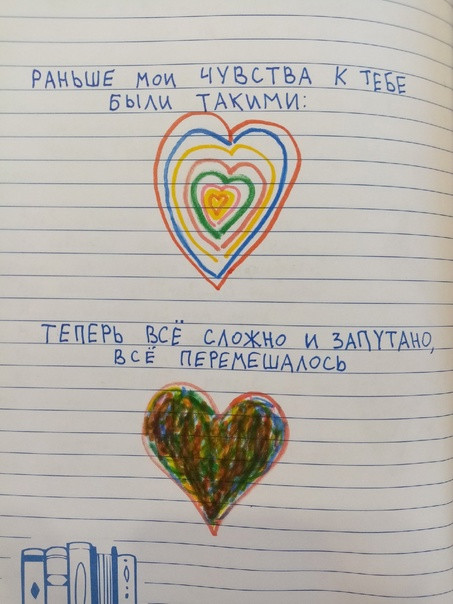 РАНЬШЕ МОИ ЧУВСТВА К ТЕБЕ
БЫЛИ ТАКИМИ:
ТЕПЕРЬ ВСЁ СЛОЖНО И ЗАПУТАНО,
ВСЁ ПЕРЕМЕШАЛОСЬ